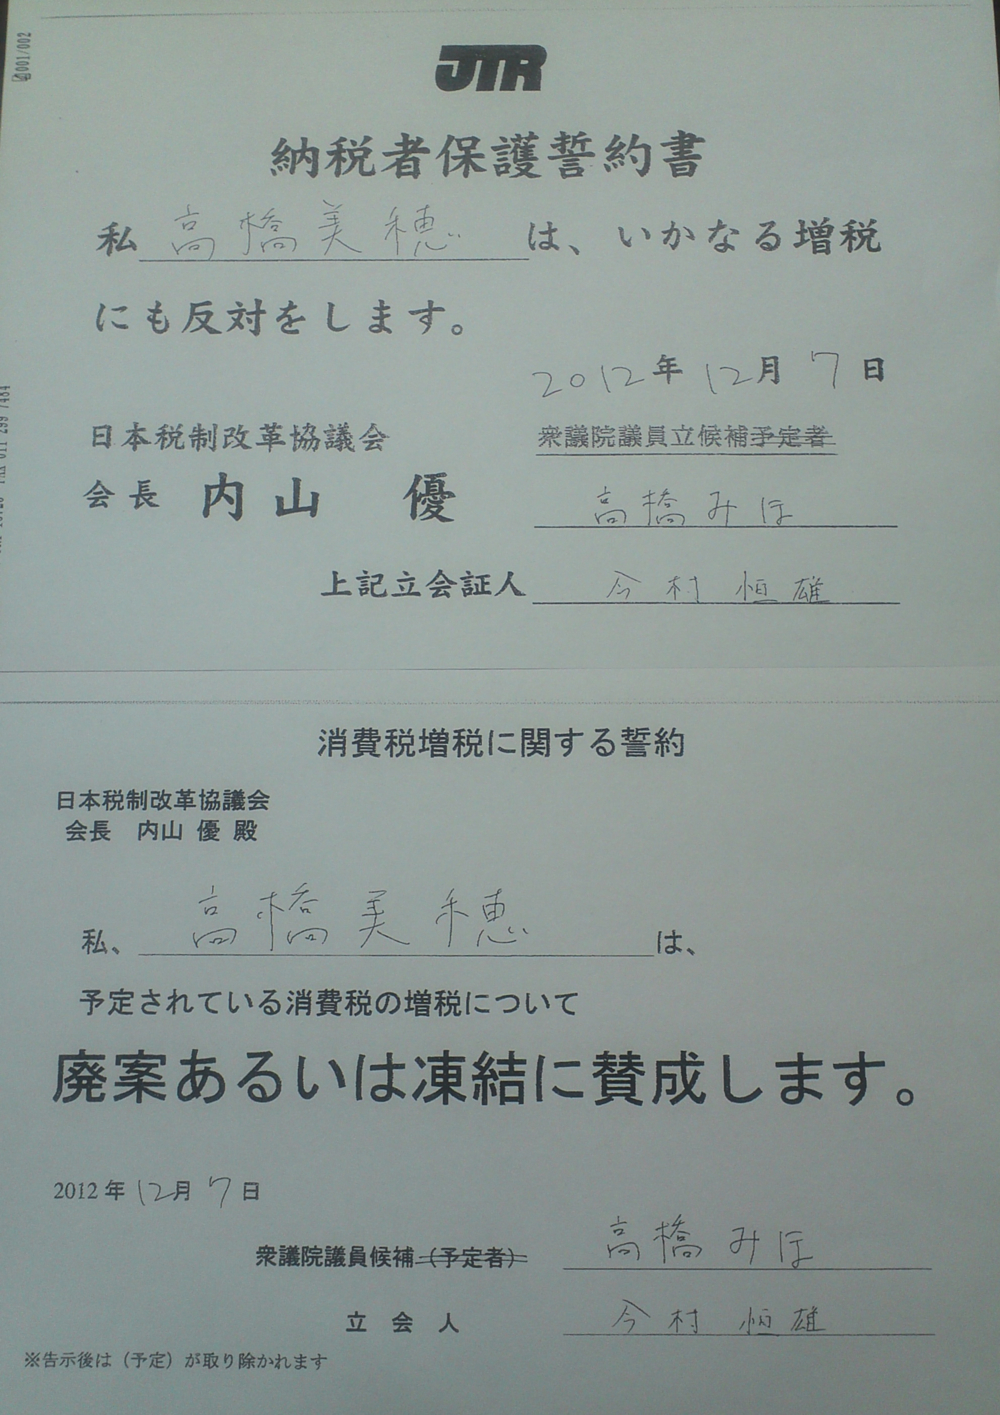 001/002
JTR
納税者保護誓約書
私 高橋美穂 は、いかなる増税
にも反対をします。
2012年 12月 7日
日本税制改革協議会
衆議院議員立候補予定者
会長 内山 優
高橋みほ
上記立会証人 今村 恒雄
消費税増税に関する誓約
日本税制改革協議会
会長 内山 優 殿
私、 高橋美穂 は、
予定されている消費税の増税について
廃案あるいは凍結に賛成します。
2012年 12月 7日
衆議院議員候補(予定者) 高橋みほ
立 会 人 今村 恒雄
※告示後は(予定)が取り除かれます